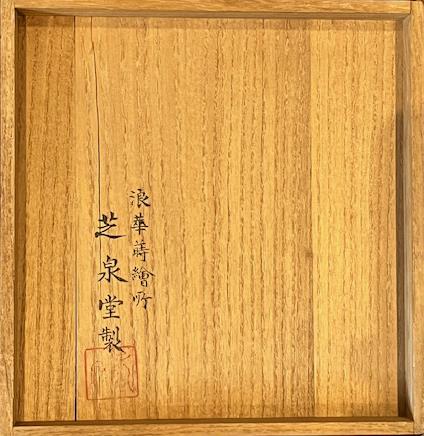 浪華蒔繪所
芝泉堂製